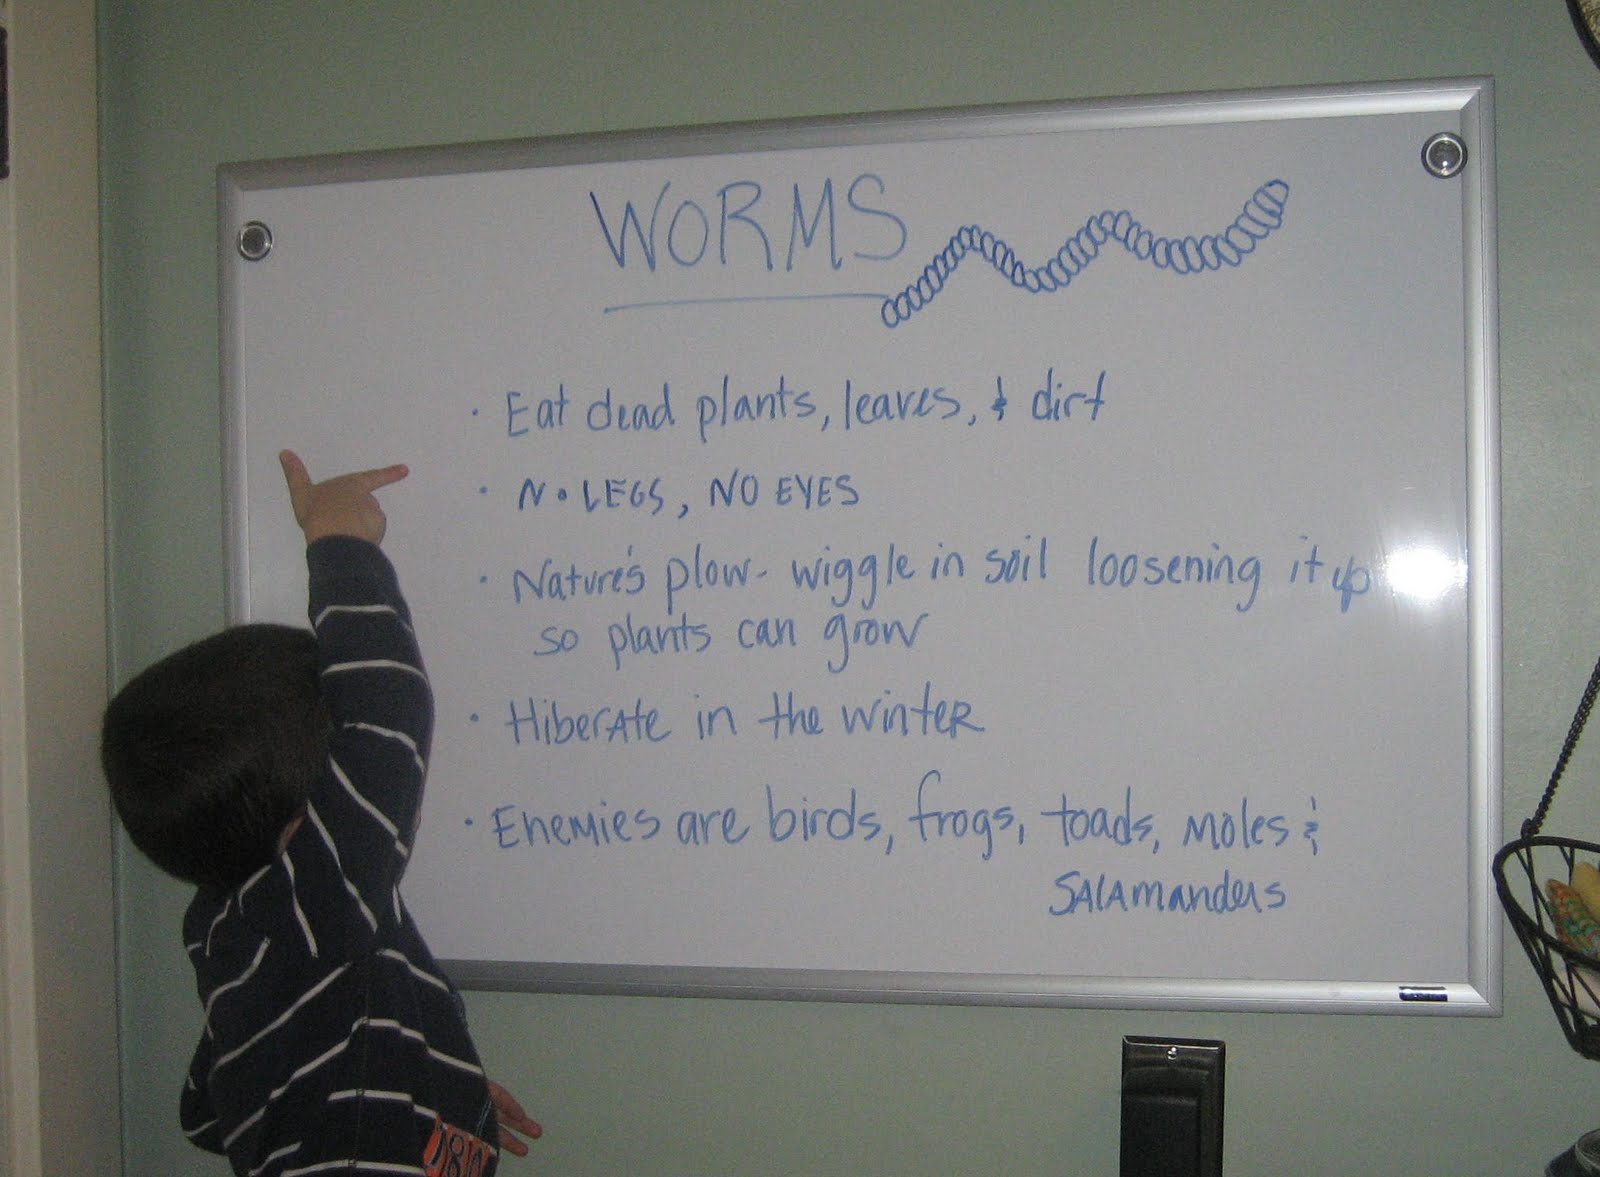 WORMS
· Eat dead plants, leaves, & dirt
· NO LEGS, NO EYES
· Nature's plow - wiggle in soil loosening it up
so plants can grow
· Hibernate in the winter
· Enemies are birds, frogs, toads, moles &
Salamanders